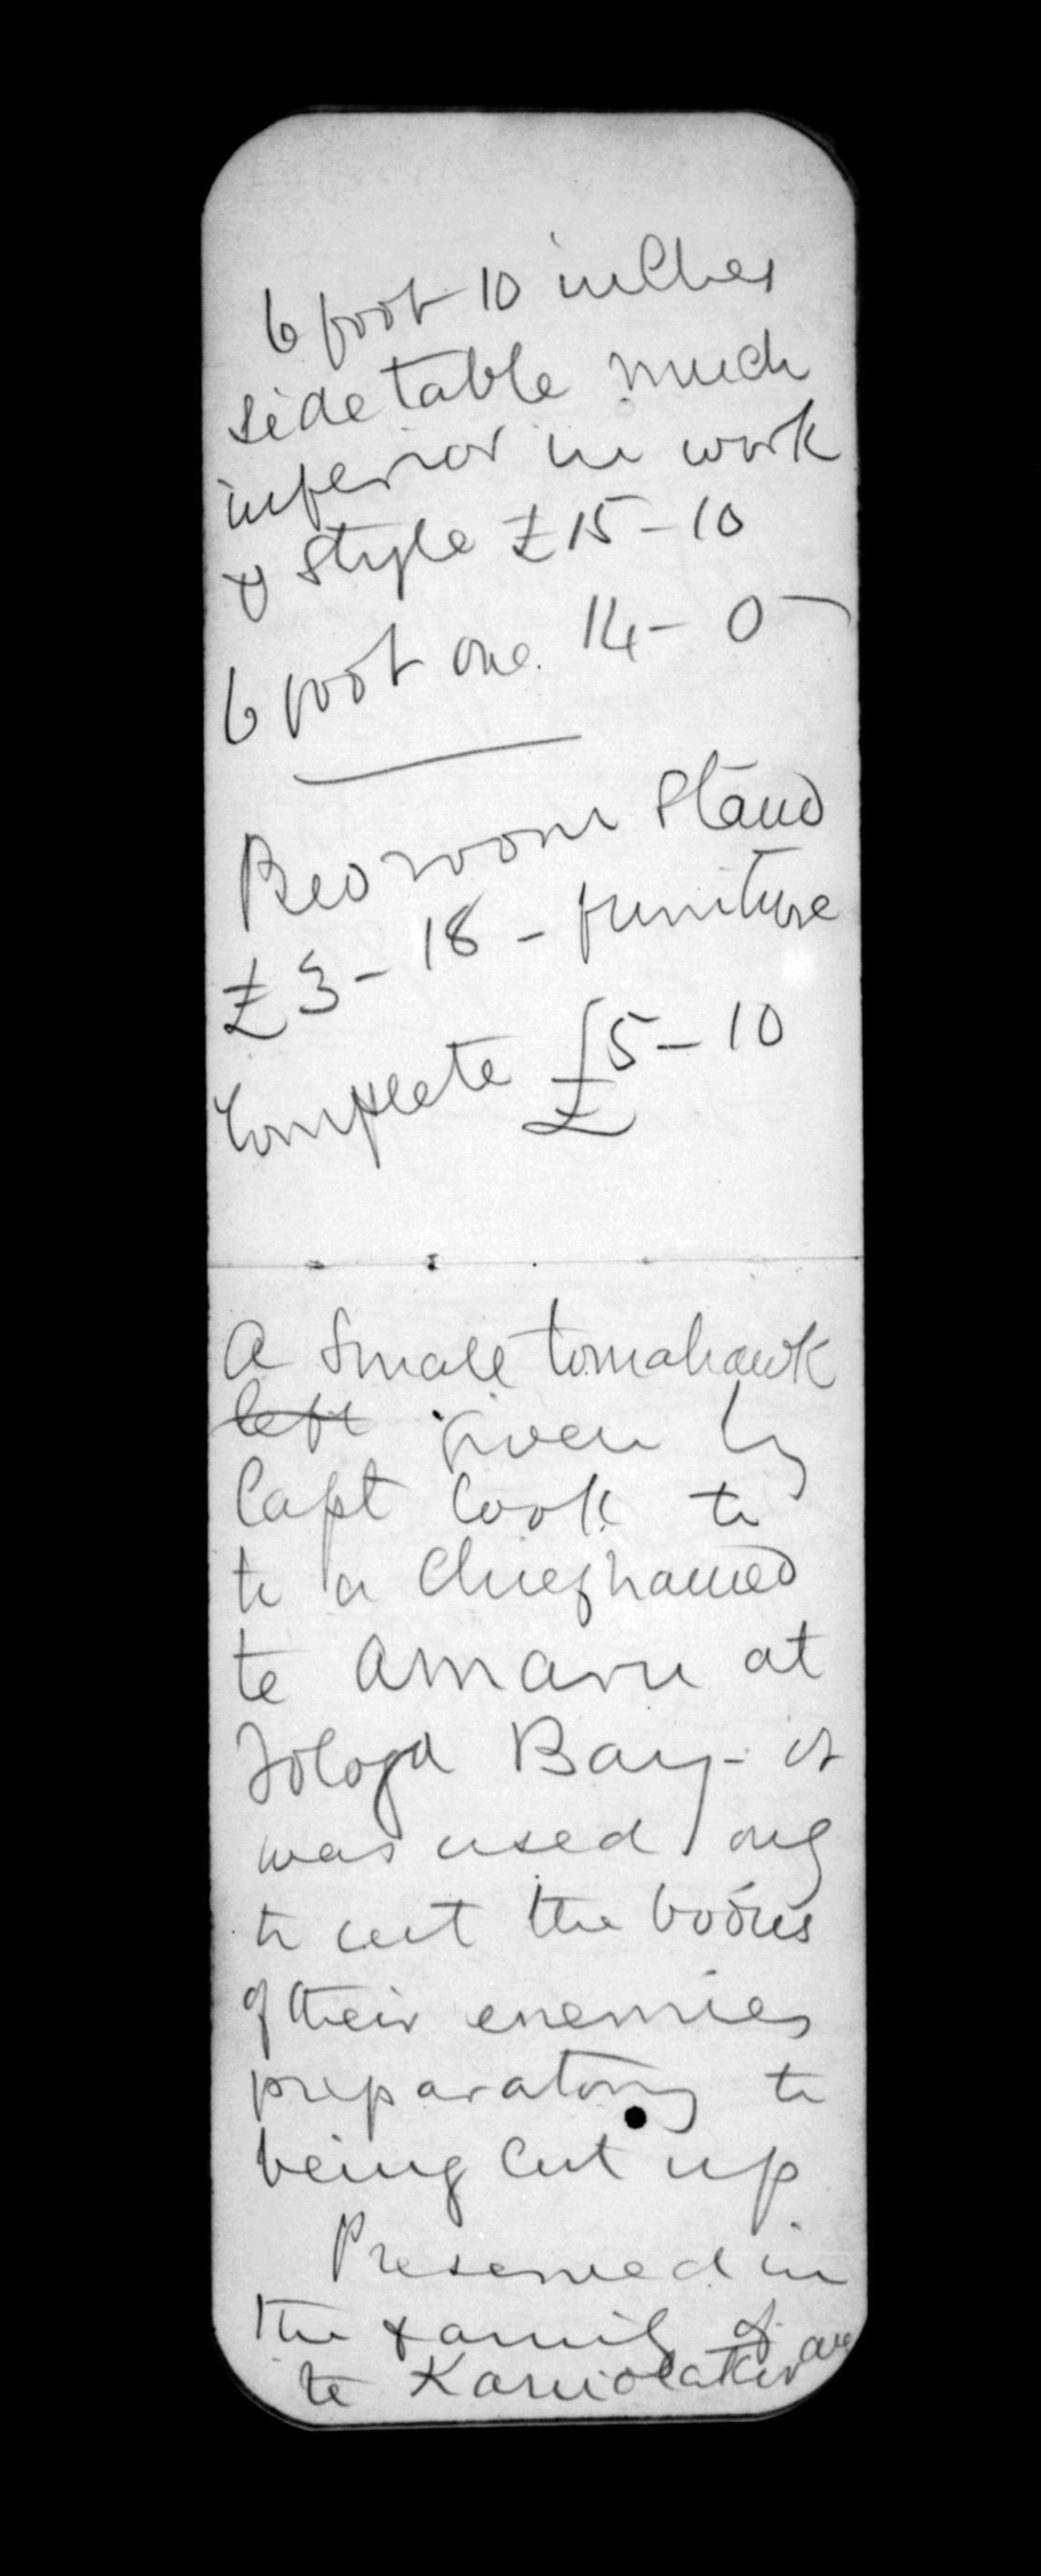 6 foot 10 inches
side table much
inferior in work
& style £15-10
6 foot one. 14-0-
Bedroom Stand
£3-18- furniture
Complete £5-10
A small tomahawk
left given by
Capt Cook to
to a Chief named
te Amaru at
Tologa Bay - it
was used long
to cut the bodies
of their enemies
preparatory to
being cut up
Preserved in
the family of
te Kani o